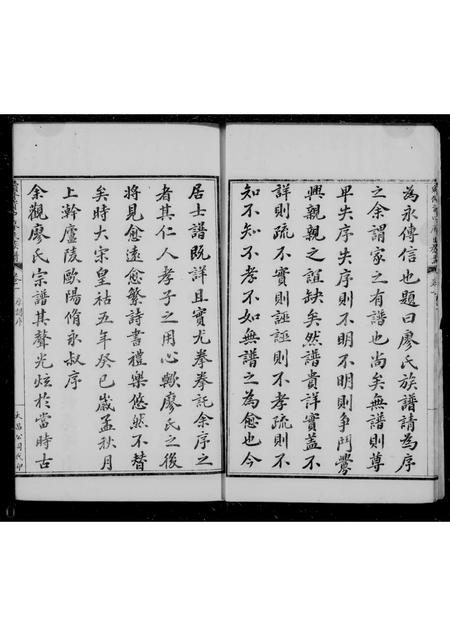 為永傳信也題曰廖氏族譜請為序
之余謂家之有譜也尚矣無譜則尊
卑失序失序則不明不明則爭鬥釁
興親親之誼缺矣然譜貴詳實蓋不
詳則疏不實則誣誣則不孝疏則不
知不知不孝不如無譜之為愈也今
居士譜既詳且實尤拳拳託余序之
者其仁人孝子之用心歟廖氏之後
將見愈遠愈繁詩書禮樂悠然不替
矣時大宋皇祜五年癸巳歲孟秋月
上幹廬陵歐陽脩永叔序
余觀廖氏宗譜其聲光炫於當時古
大昌公司代印